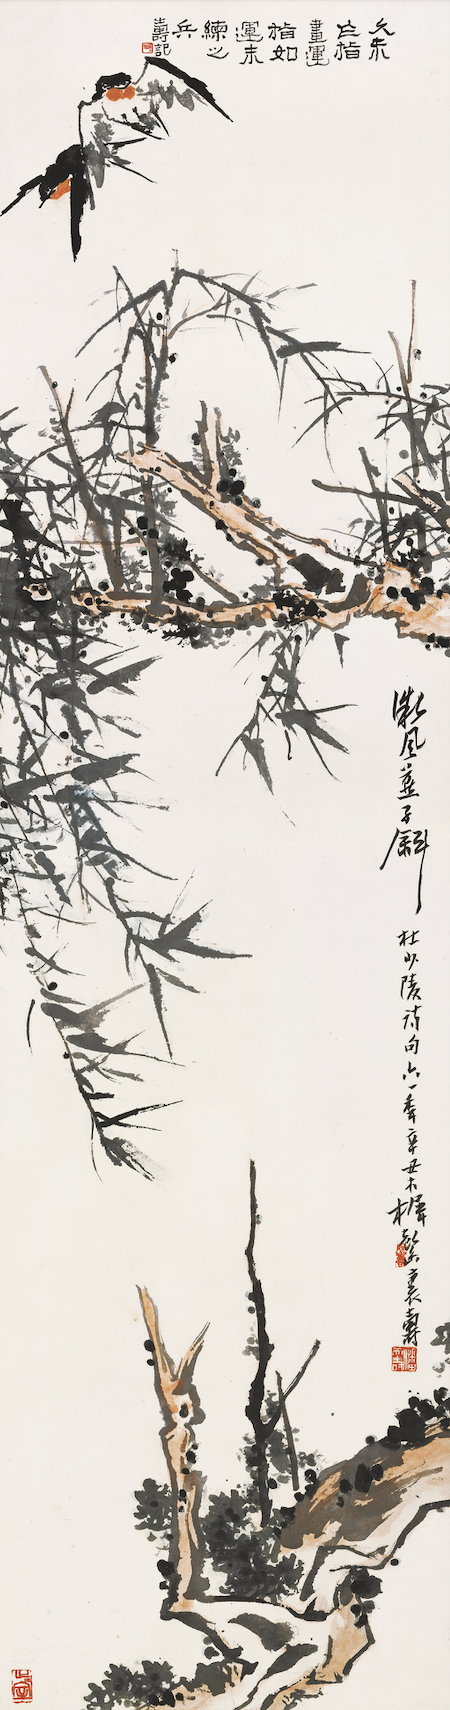 久未
作指
畫運
指如
運未
練之
兵
壽記
微風燕子斜
杜少陵詩句六一年辛丑木樨馨裏壽